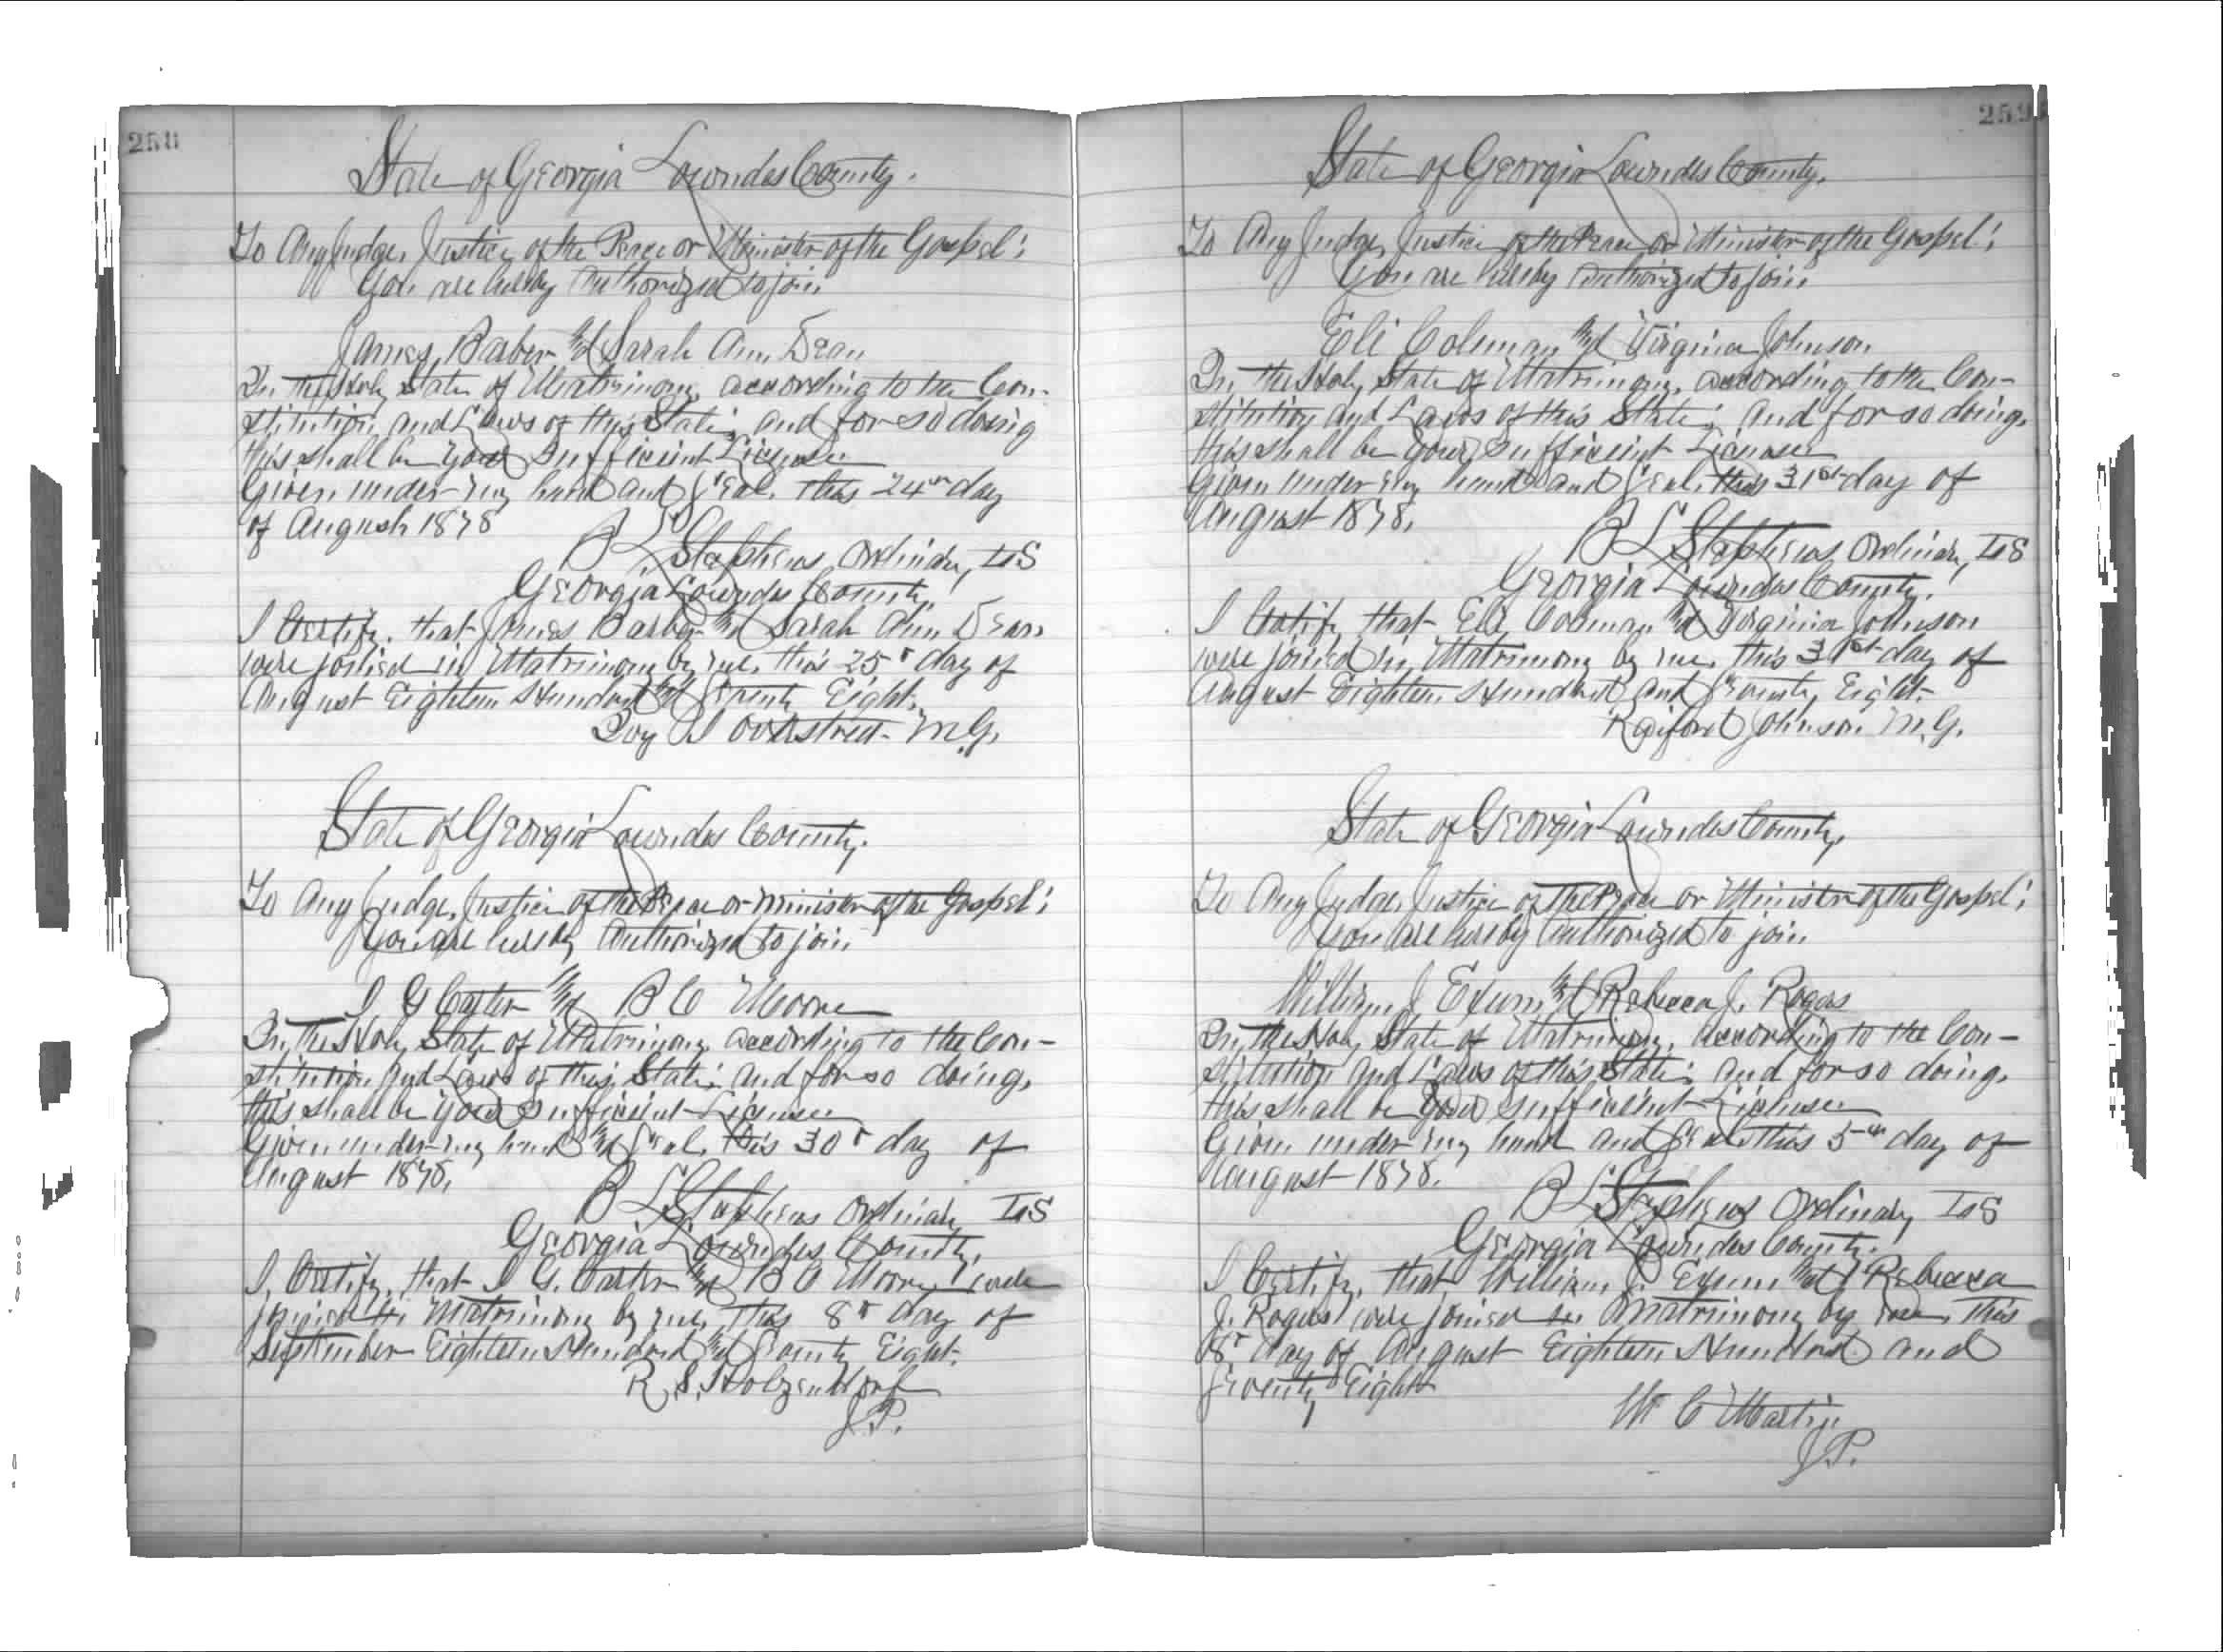 258
State of Georgia Lowndes County.
To Any Judge, Justice of the Peace or Minister of the Gospel;
You are hereby Authorized to join
James Barber and Sarah Ann Dean
In the Holy State of Matrimony, according to the Con-
stitution and Laws of this State; and for so doing
this shall be your Sufficient License
Given under my hand and Seal, this 24th day
of August 1878
B L Stephens Ordinary, L.S
Georgia Lowndes County.
I Certify, that James Barber and Sarah Ann Dean
were joined in Matrimony by me, this 25th day of
August Eighteen Hundred and Seventy Eight.
Ivy J Overstreet M.G.
State of Georgia Lowndes County.
To Any Judge, Justice of the Peace or Minister of the Gospel;
You are hereby Authorized to join
I G Carter and B C Moore
In the Holy State of Matrimony according to the Con-
stitution and Laws of this State; and for so doing,
this shall be your Sufficient License
Given under my hand and Seal, this 30th day of
August 1878,
B L Stephens Ordinary L.S
Georgia Lowndes County,
I, Certify, that I G. Carter and B C Moore were
joined in Matrimony by me, this 8th day of
September Eighteen Hundred and Seventy Eight.
R, S, Holzendorf
J.P.
259
State of Georgia Lowndes County.
To Any Judge, Justice of the Peace or Minister of the Gospel;
You are hereby Authorized to join
Eli Coleman and Virginia Johnson
In the Holy State of Matrimony, according to the Con-
stitution and Laws of this State; and for so doing,
this shall be your Sufficient License
Given under my hand and Seal, this 31st day of
August 1878,
B L Stephens Ordinary, L.S
Georgia Lowndes County.
I Certify that Eli Coleman and Virginia Johnson
were joined in Matrimony by me, this 31st day of
August Eighteen Hundred and Seventy Eight.
Raiford Johnson M.G.
State of Georgia Lowndes County,
To Any Judge, Justice of the Peace or Minister of the Gospel;
You are hereby Authorized to join
William J Exum and Rebecca J. Rogers
In the Holy State of Matrimony, according to the Con-
stitution and Laws of this State; and for so doing,
this shall be your sufficient License
Given under my hand and Seal this 5th day of
August 1878.
B L Stephens Ordinary L.S
Georgia Lowndes County.
I Certify, that William J. Exum and Rebecca
J. Rogers were joined in Matrimony by me, this
8th day of August Eighteen Hundred and
Seventy Eight
W C Martin
J.P.